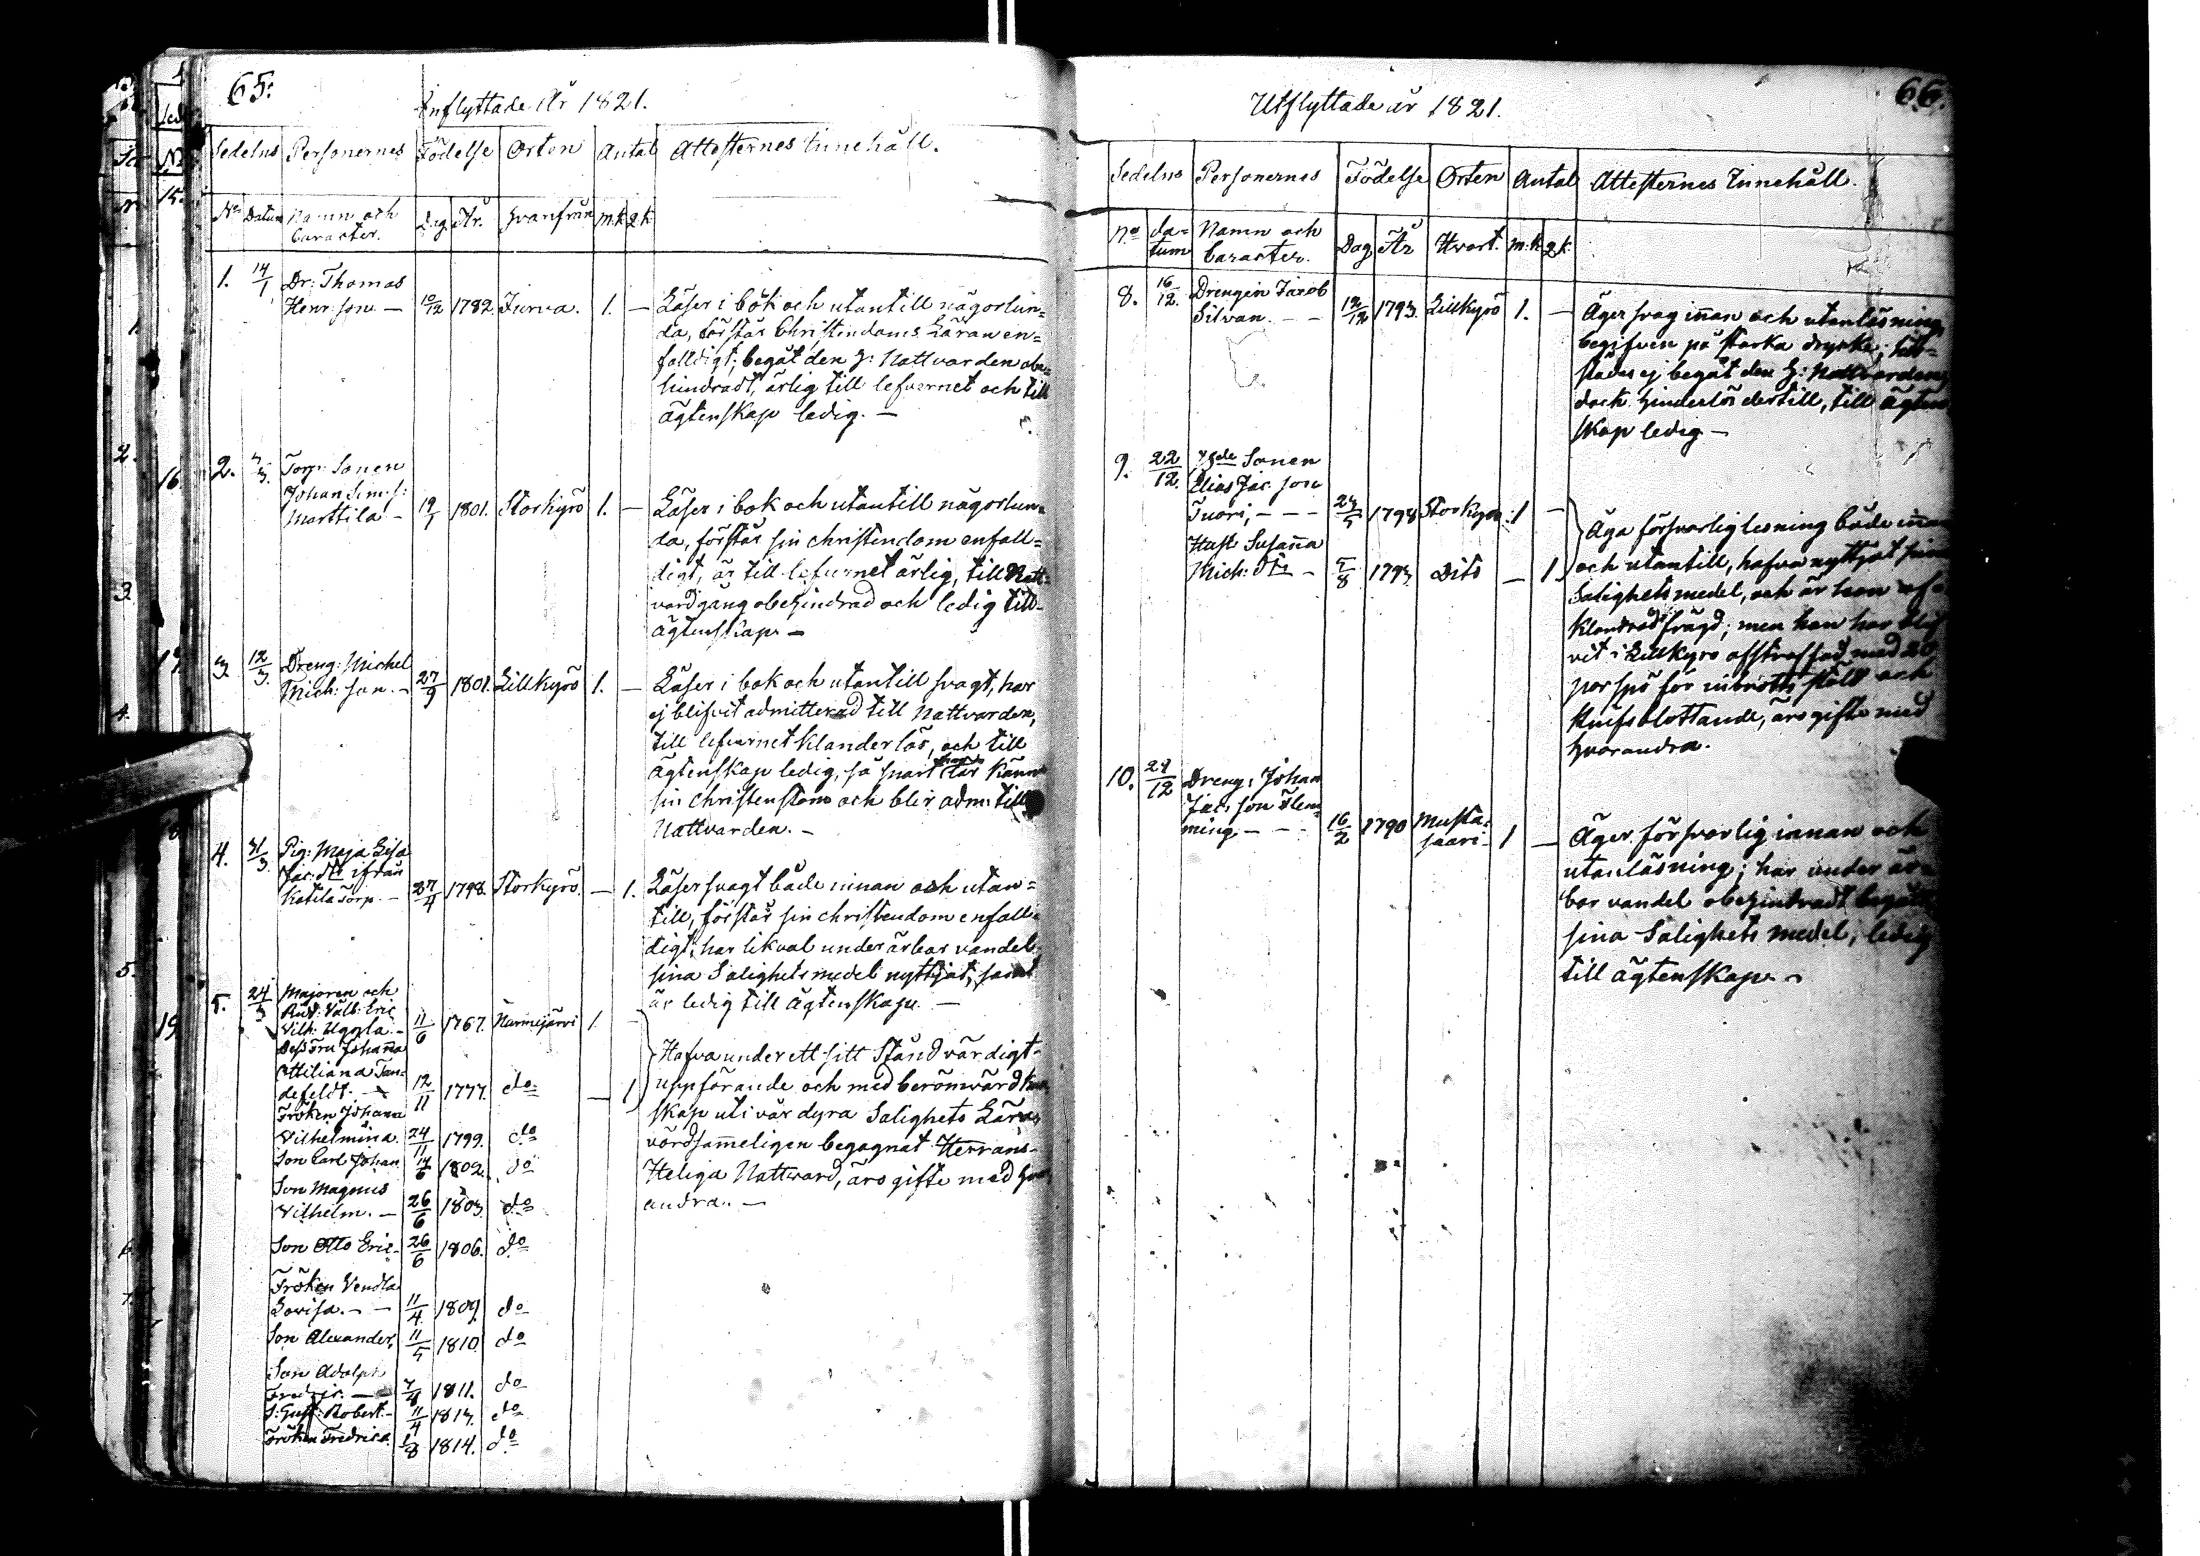 65:
Inflyttade År 1821.
Sedelns Personernes Födelse Orten Antal Attesternes Innehåll.
No Datum Namn och Caracter. Dag År. Hvarifrån m.k. q.k.
1. 14/1 Dr: Thomas
Henr: son — 10/12 1782. Jurva. 1. — Läser i bok och utantill någorlun=
da, förstår Christendoms Läran en=
falldigt, begåt den H: Nattvarden obe=
hindradt, ärlig till lefvernet och till
ägtenskap ledig. —
2. Torp: Sonen
Johan Sim: s:
Marttila — 19/1 1801. Storkyrö 1. — Läser i bok och utantill någorlun=
da, förstår sin christendom enfall=
digt, är till lefvernet ärlig, till Natt=
vardgång obehindrad och ledig till
ägtenskap —
3. 12/3. Dreng: Michel
Mich: son. — 27/9 1801. Lillkyrö 1. — Läser i bok och utantill svagt, har
ej blifvit admitterad till Nattvarden,
till lefvernet klanderlös, och till
ägtenskap ledig, så snart lär känna
sin christendom och blir adm: till
Nattvarden. —
4. 31/3. Pig: Maja Lisa
Jac: dtr ifrån
Katila Torp. — 27/4 1798. Storkyrö. — 1. Läser svagt både innan och utan=
till, förstår sin christendom enfall=
digt, har likväl under ärbar vandel
sina Salighets medel nyttjat, samt
är ledig till ägtenskap. —
5. 24/3 Majoren och
Ridd: Välb: Eric
Vilh: Uggla — 11/6 1767. Närmijärvi 1. —
Dess Fru Johanna
Ottiliana Tan=
defeldt. — 12/11 1777. do — 1
Hafva under ett sitt Stånd värdigt
uppförande och med berömvärd kun
skap uti vår dyra Salighets Läran
vördsammeligen begagnat Herrans
Heliga Nattvard, äro gifte med hvar
andra. —
Fröken Johana
Vilhelmina. 24/11 1799. do
Son Carl Johan 14/6 1802. do
Son Magnus
Vilhelm. — 26/6 1803. do
Son Otto Eric — 26/6 1806. do
Fröken Vendla
Lovisa. — — 11/4 1809. do
Son Alexander, 11/5 1810 do
Son Adolph
Fredric. — 1811. do
S: Gust: Robert — 11/4 1813. do
Fröken Fredrica. 1814. do
66.
Utflyttade år 1821.
Sedelns Personernes Födelse Orten Antal Attesternes Innehåll.
no da=
tum Namn och
Caracter. Dag År Hvart. m.k. q.k.
8. 16/12. Drengen Jacob
Silvan. — — 12/12 1793. Lillkyrö 1. — Äger svag innan och utanläsning,
begifven på starka drycker, till=
städes ej begåt den H: Nattvarden,
dock hinderlös dertill, till ägten
skap ledig —
9. 22/12. Sonen
Elias Jac: son
Tuori, — — — 1798 Storkyrö 1 —
Hust Susanna
Mich: dtr — 5/8 1793. Dito — 1.
Äga försvarlig lesning både innan
och utantill, hafva nyttjat sina
Salighets medel, och är hon of=
klandrad frägd; men han har blif
vit i Lillkyro afstraffad med 20
par spö för inbrotts stöld och
knifsblottande, äro gifte med
hvarandra.
10. 28/12 Dreng: Johan
Jac: son Flem=
ming — — — 16/2 1790 Musta=
saari — 1 — Äger försvarlig innan och
utanläsning; har under är=
bar vandel obehindradt begåt
sina Salighets medel, ledig
till ägtenskap —